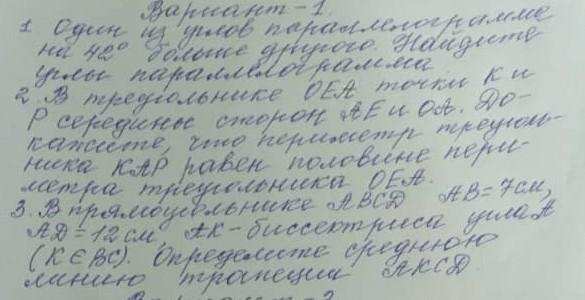 Вариант-1.
1 Один из углов параллелограмма
на 42° больше другого. Найдите
углы параллелограмма.
2. В треугольнике ОЕА точки К и
Р середины сторон АЕ и ОА. До-
кажите, что периметр треуголь-
ника КАР равен половине пери-
метра треугольника ОЕА.
3. В прямоугольнике ABCD AB=7см,
AD=12см, АК-биссектриса угла А
(К∈ВС). Определите среднюю
линию трапеции AKCD.